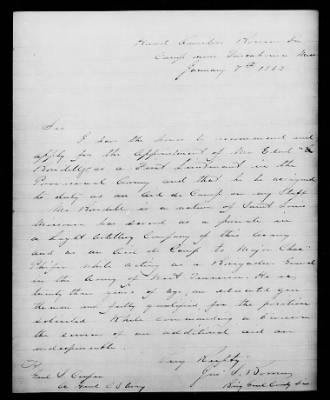 Head Quarters Bowen Div
Camp near
January 7th 1863
Sir
I have the honor to recommend and
apply for the appointment of Mr Edw
as a First Lieutenant in the
Provisional Army and that he be assigned
to duty as an Aid de Camp on my Staff
Mr is a native of Saint Louis
Missouri has served as a private in
a Light Artillery Company of this Army
and as an Aid de Camp to Major Chas
Pfifer while acting as a Brigadier Genl
in the Army of West Tennessee. He is
twenty three years of age, an educated gen
tleman and fully qualified for the position
solicited. While commanding a Division
the services of an additional aid are
indispensable.
Very Respfly
Jno S. Bowen
Brig Genl Comdg Div
To
Genl S. Cooper
A Genl C S Army